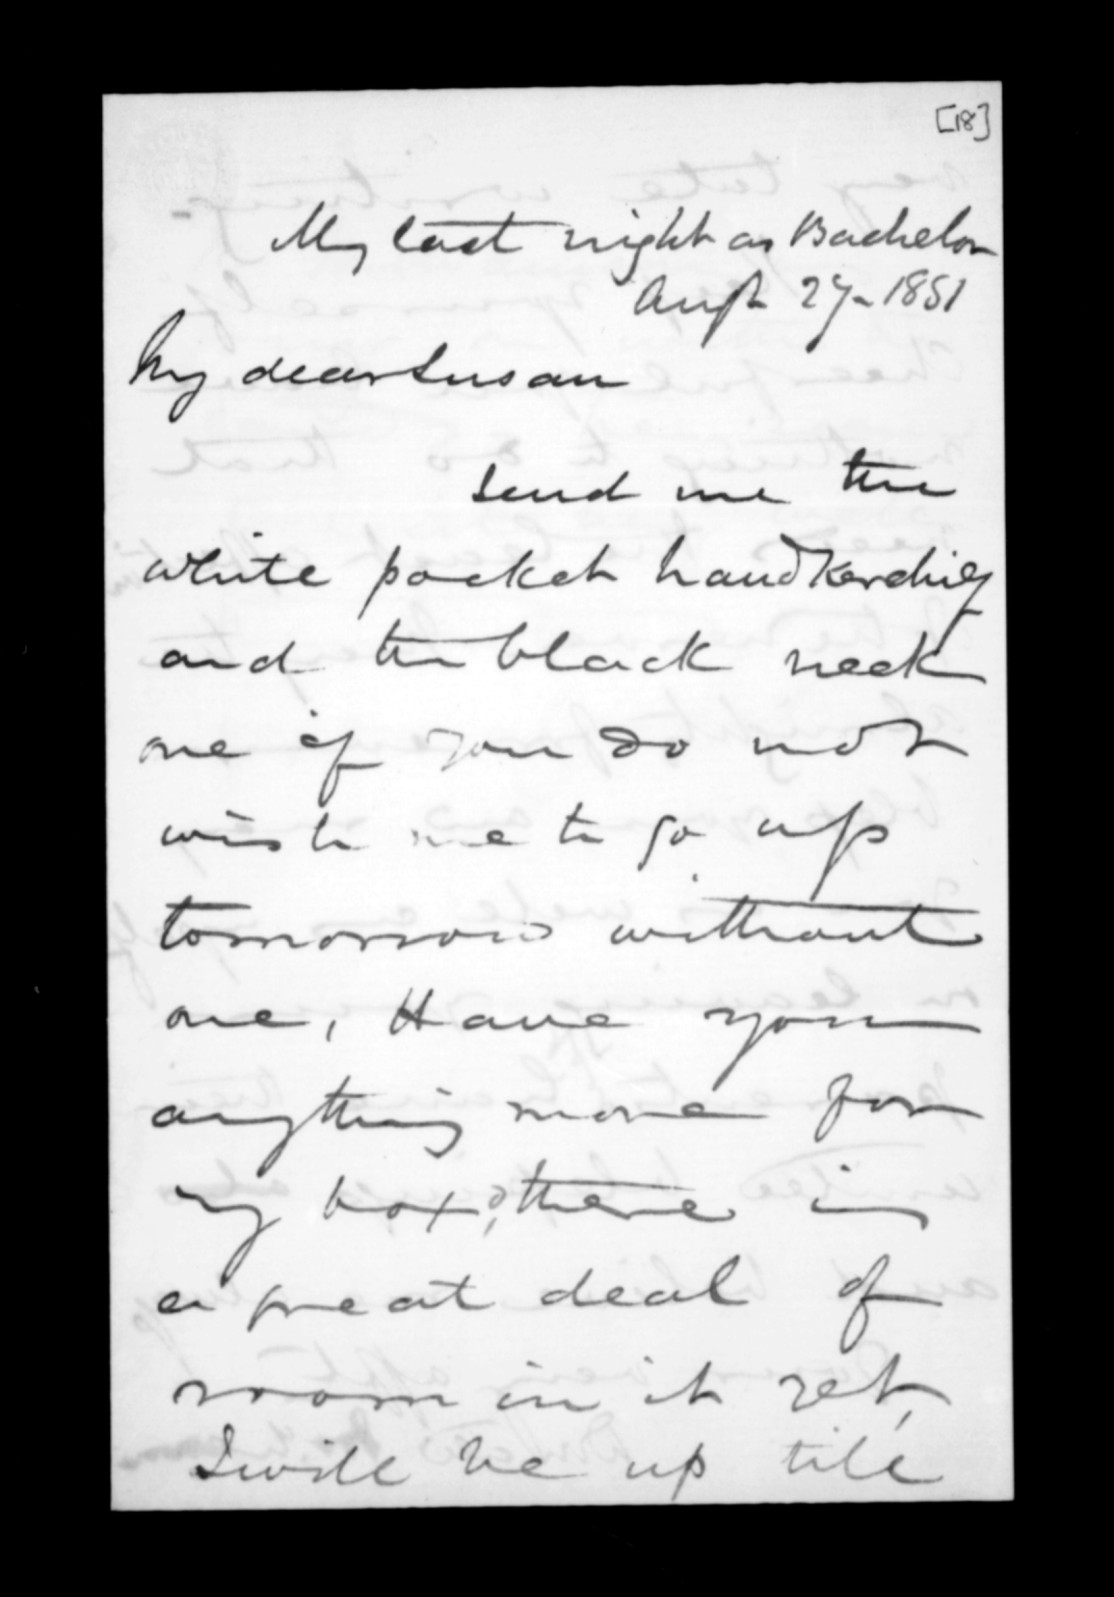 [18]
My last night as Bachelor
Augt 27 - 1851
My dear Susan
Send me the
white pocket handkerchief
and the black neck
one if you do not
wish me to go up
tomorrow without
one, Have you
anything more for
my box? there is
a great deal of
room in it yet,
I will be up till